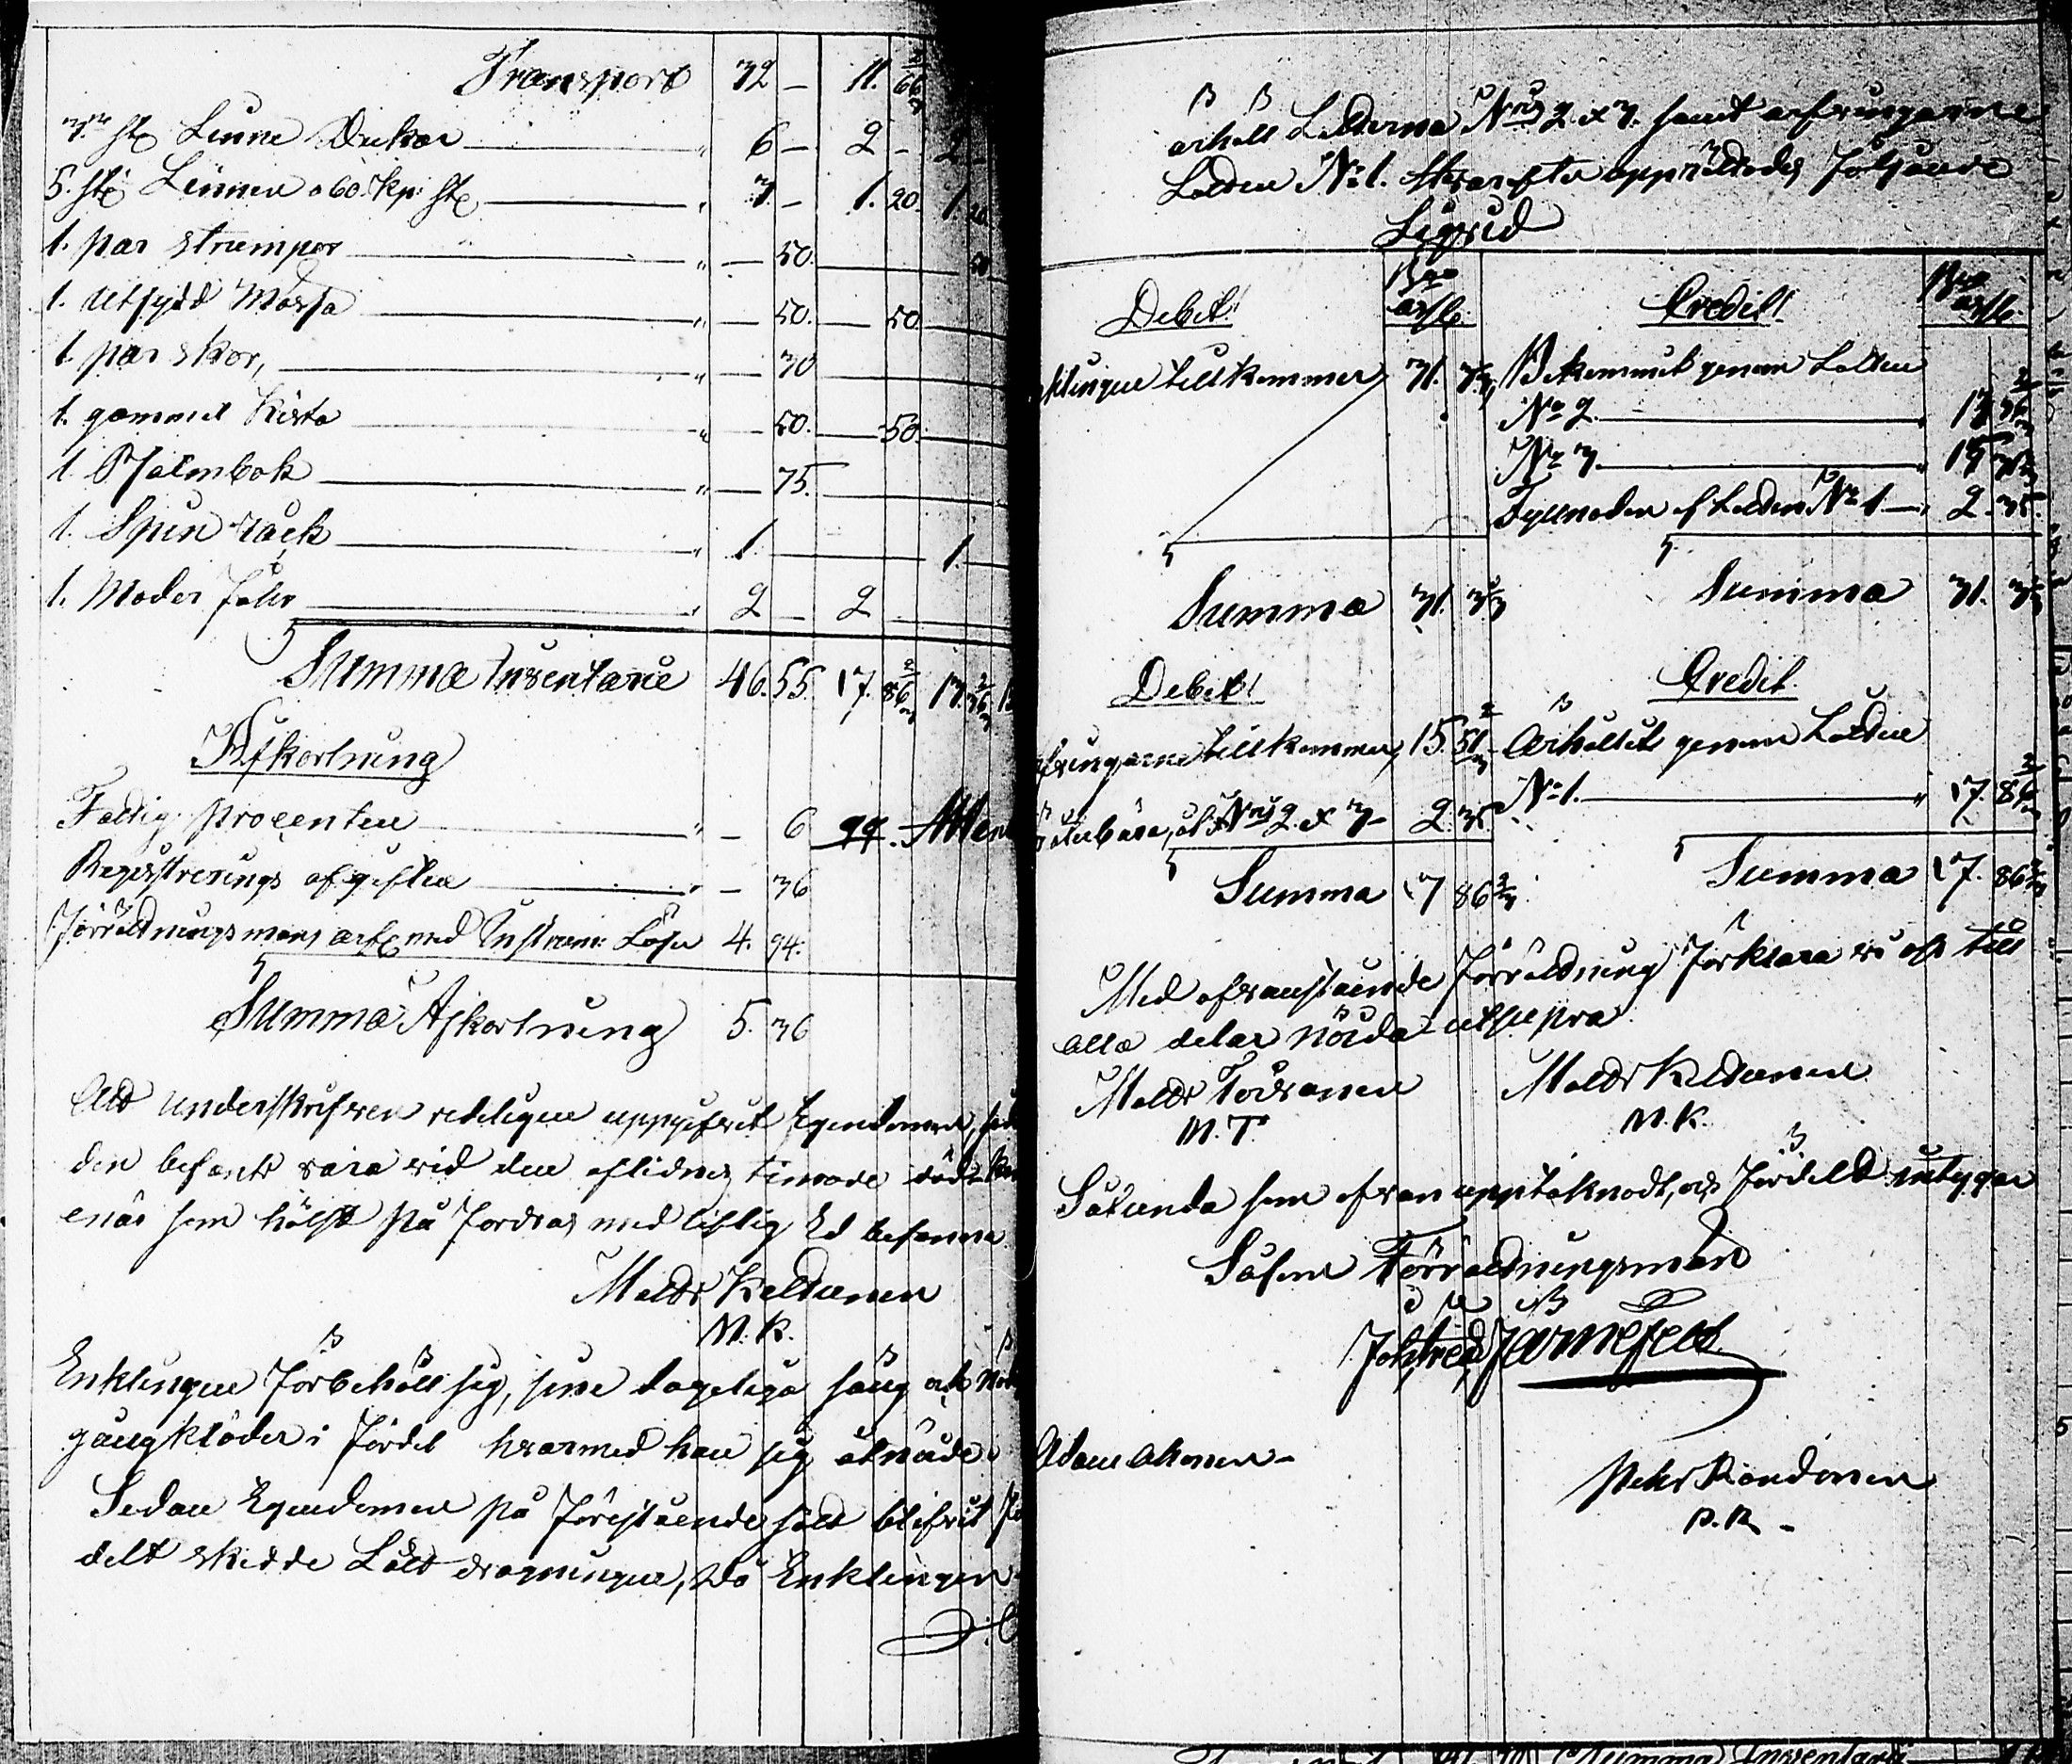 Transport 32 — 11. 66 2/3
3ne st Linne Dukar — " 6 — 2 — 2 —
5. st Linnen a 60. Kp. st — " 3. — 1. 20. 1. 20
1. par strumpor — " — 50. — 50
1. utsydd Mössa — " — 50. — 50
1. par skor, — " — 30
1. gammal Kista — " — 50. — 50.
1. Psalmbok — " — 75.
1. Spin råck — " 1. — 1.
1. Moder fåhr — " 2 — 2 —
Summa Inventarie 46. 55. 17. 86 2/3 13. 36 2/3 15
Afkortning
Fattig procenten — " — 6
Registrerings afgiften — " — 36
Förrättningsmans arfv. med Instrum: Lösen 4. 94.
Summa Afkortning 5. 36
Att underskrifven redeligen uppgifvit Egendomen, så
den befants vara vid den aflidnes timade död
enär som hälst på fordras med liflig Ed besanna
Matts Keldunen
M. K.
Enklingen förbehöll sig, sine dageliga säng och
gångkläder i fördel hvarmed han sig åtnöide.
Sedan Egendomen på förestående sätt blifvit
delt skedde Lått dragningen, då Enklingen
erhöll Låtterna Nris 2. & 3. samt arfvingarne
Lotten No 1. Hvarefter upprättades följande
Liqvid
Debet! Credit!
Enklingen tillkommer, 31. 3 1/3 Bekommit genom Lotten
No 2. — " 13 36 2/3
No 3. — " 15 31 2/3
Fyllnaden af Lotten No 1 — " 2. 35.
Summa 31. 3 1/3 Summa 31. 3 1/3
Debet! Credit.
Arfvingarne tillkommer, 15. 51 2/3 Erhållit genom Lotten
återbära, åt Nris 2. & 3 — 2. 35. No 1. — " 17. 86 2/3
Summa 17 86 2/3 Summa 17. 86 2/3
Med ofvanstående förrättning förklara vi oss till
alla delar nöida utsupra
Matts Matts Keldunen
M. T. M. K.
Sålunda som ofvan upptäknadt, och fördelt intygar
Såsom Förrättningsman
Järnefelt
Adam Ahonen — Petter Rondonen
P. R. —
Summa Inventarie